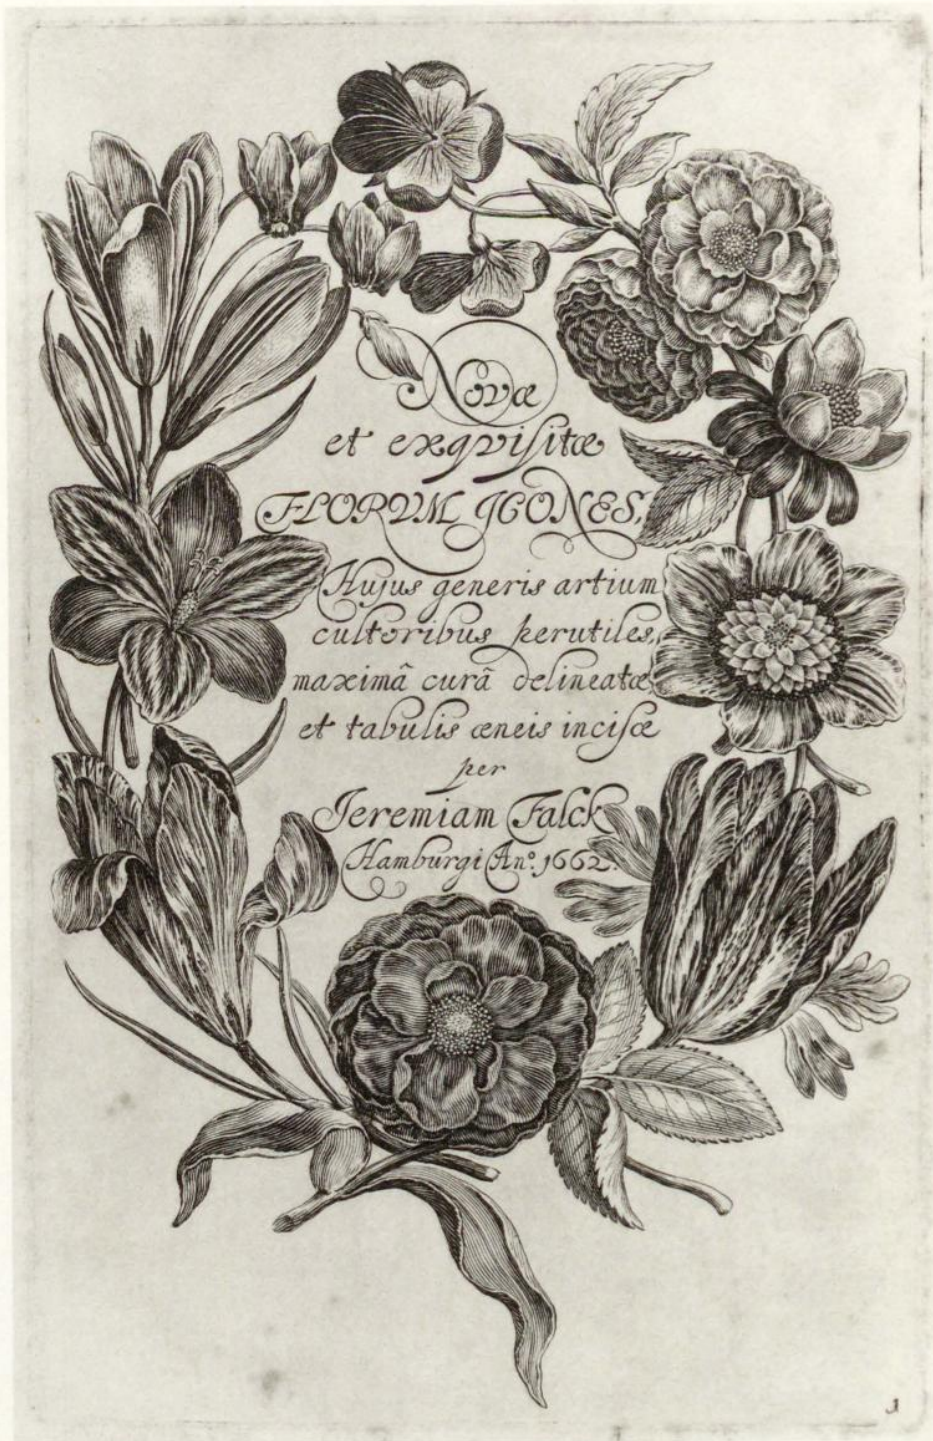 Novæ
et exqvisitæ
FLORVM ICONES,
Hujus generis artium
cultoribus perutiles,
maximâ curâ delineatæ
et tabulis æneis incisæ
per
Jeremiam Falck
Hamburgi Anº. 1662.
1